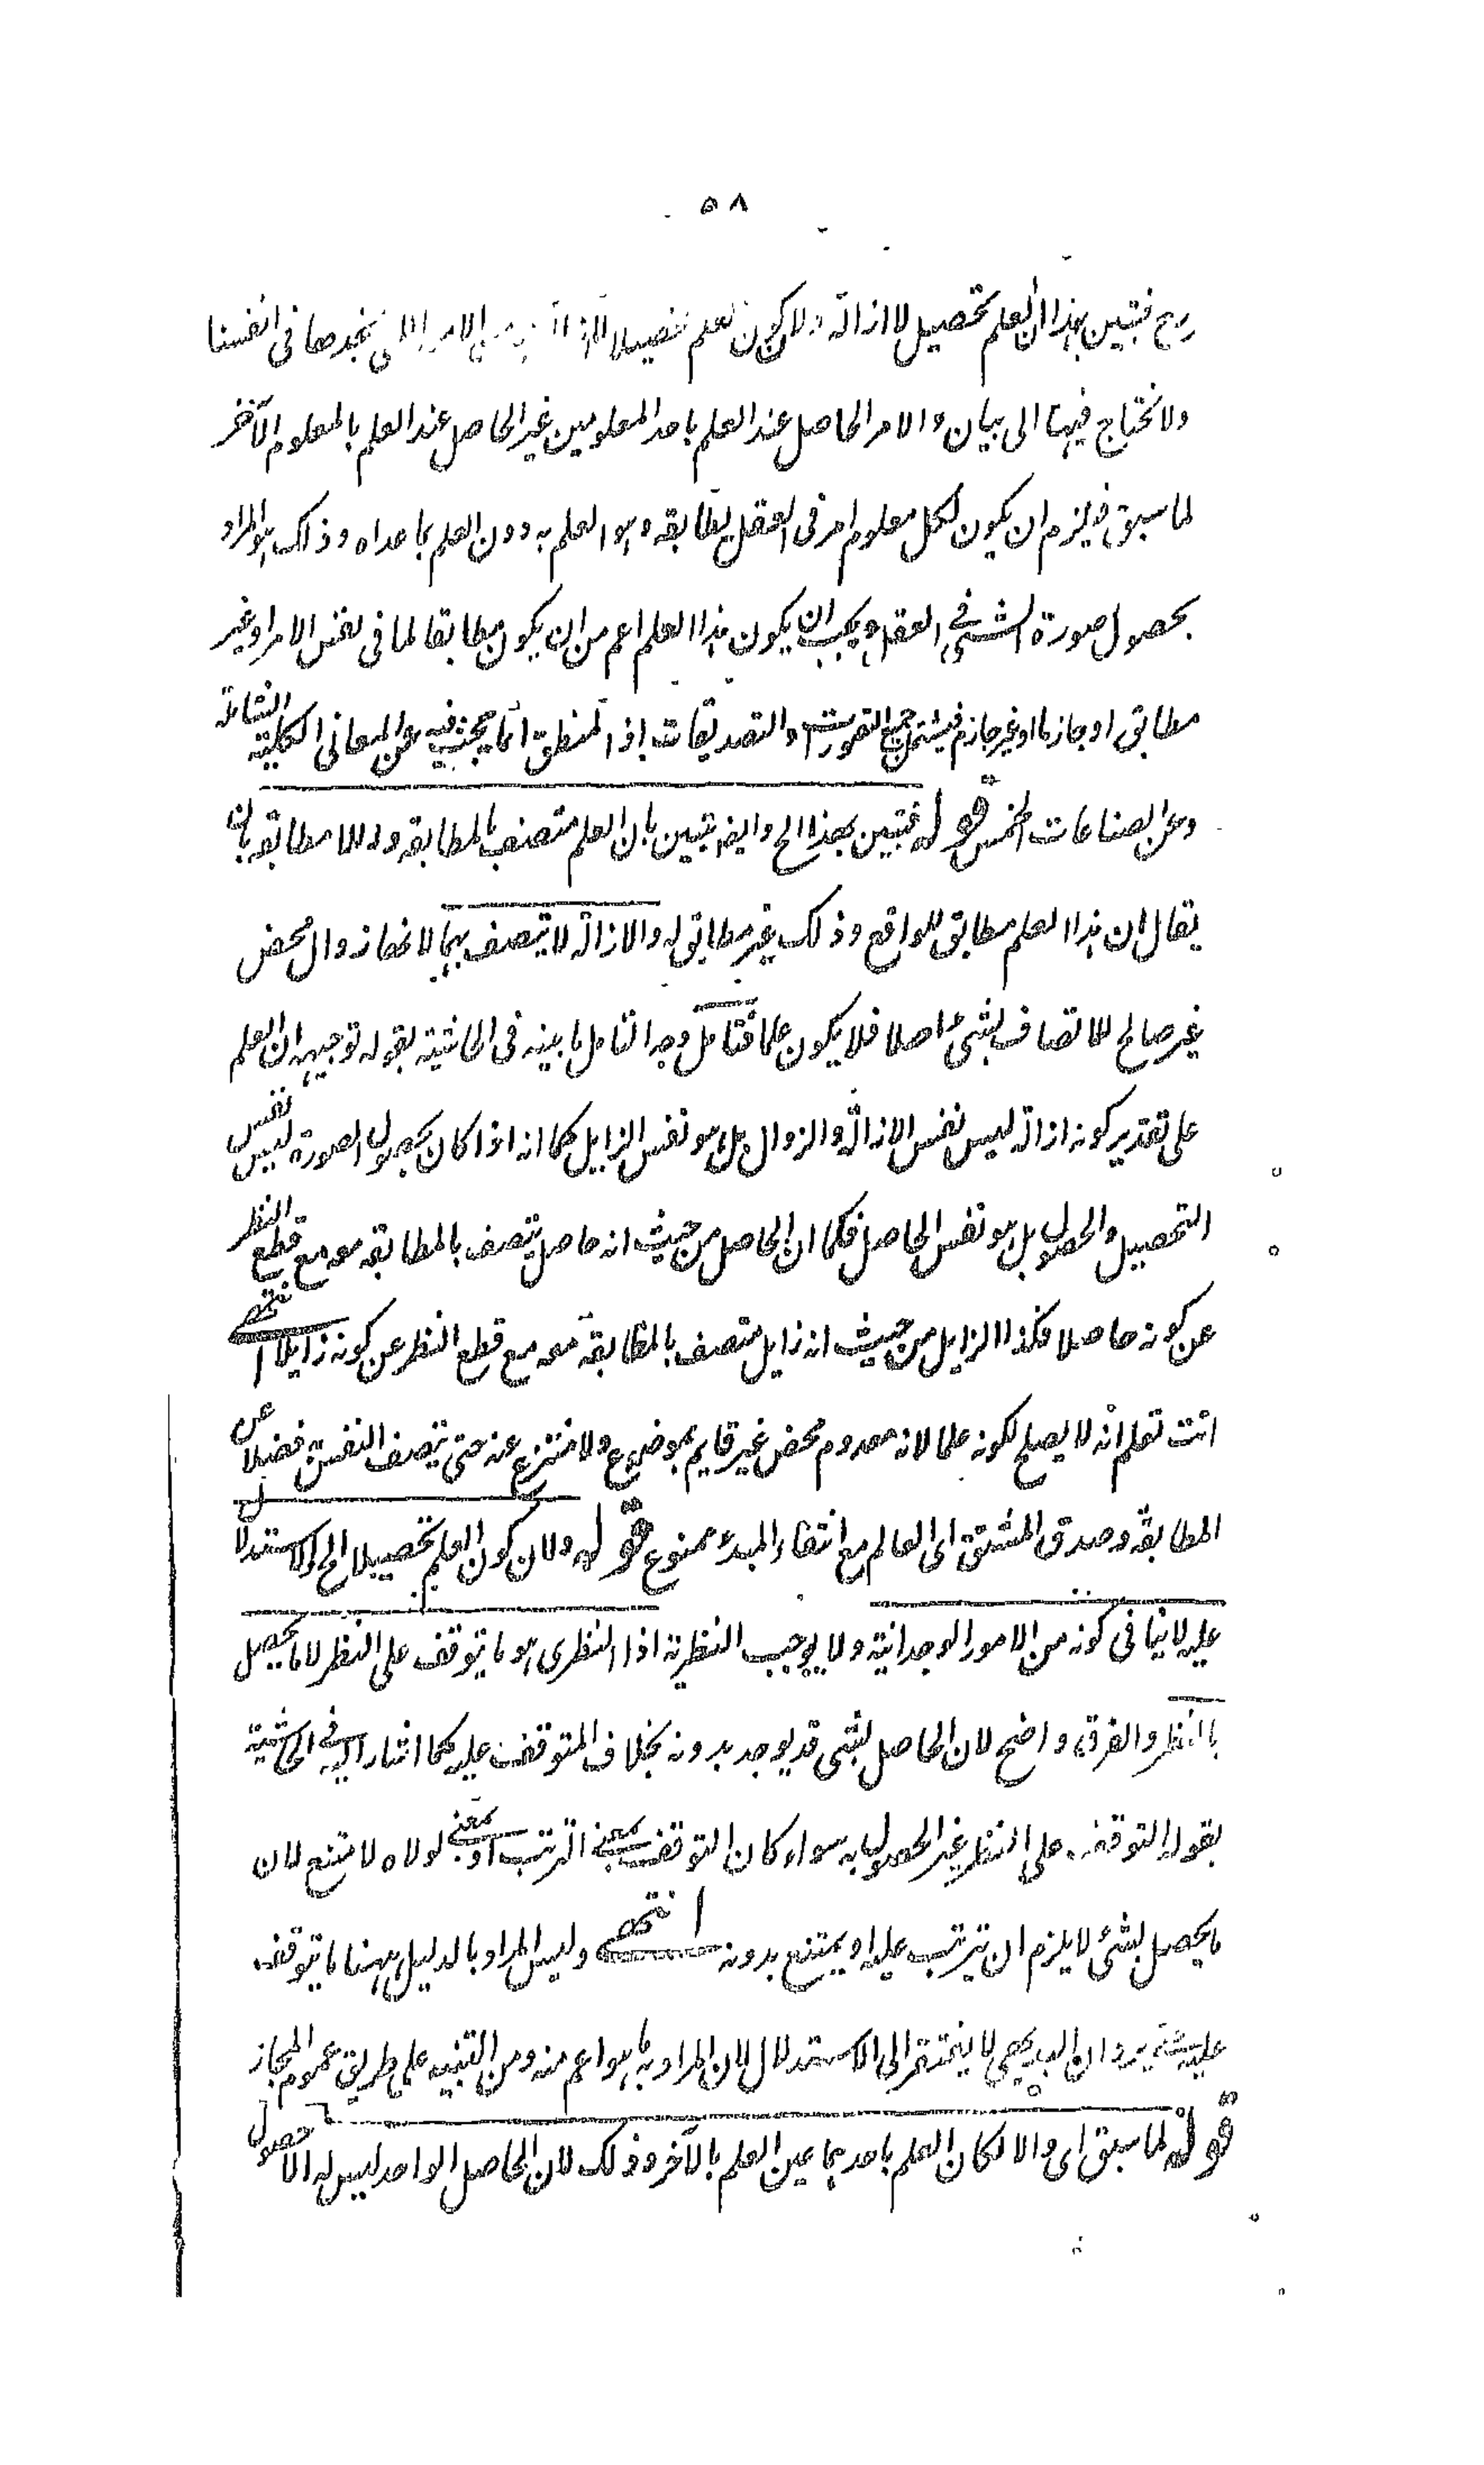 ٥٨
ريح فتبين بهذا ان العلم تحصيل لا ازالة ولان كون العلم تحصيلا لا ازالة من الامور التى نجدها فى انفسنا
ولا نحتاج فيها الى بيان والامر الحاصل عند العلم باحد المعلومين غير الحاصل عند العلم بالمعلوم الآخر
لما سبق فيلزم ان يكون لكل معلوم امر فى العقل يطابقه وهو العلم به دون العلم بما عداه وذلك هو المراد
بحصول صورة الشئ فى العقل ويجب ان يكون هذا العلم اعم من ان يكون مطابقا لما فى نفس الامر او غير
مطابق او جازما او غير جازم فيشتمل جميع التصورات والتصديقات اذ المنطق انما يبحث فيه عن المعانى الكلية الشاملة
وعن الصناعات الخمس قوله فتبين بهذا الخ وايضا تبين بان العلم متصف بالمطابقة واللا مطابقة بان
يقال ان هذا العلم مطابق للواقع وذلك غير مطابق له والازالة لا يتصف بهما لانها زوال محض
غير صالح للاتصاف بشئ اصلا فلا يكون علما فتامل وجه التامل ما بينه فى الحاشية بقوله توجيهه ان العلم
على تقدير كونه ازالة ليس نفس الازالة والزوال بل هو نفس الزايل كما انه اذا كان بحصول الصورة ليس نفس
التحصيل والحصول بل هو نفس الحاصل فكما ان الحاصل من حيث انه حاصل يتصف بالمطابقة معه مع قطع النظر
عن كونه حاصلا فكذا الزايل من حيث انه زايل متصف بالمطابقة معه مع قطع النظر عن كونه زايلا انتهى
انت تعلم انه لا يصلح لكونه علما لانه معدوم محض غير قايم بموضوع ولا منتزع عنه حتى يتصف النفس فضلا عن
المطابقة وصدق المشتق اى العالم مع انتفاء المبدء ممنوع قوله ولان كون العلم تحصيلا الخ والاستدلال
عليه لا ينافى كونه من الامور الوجدانية ولا يوجب النظرية اذ النظرى هو ما يتوقف على النظر لا ما يحصل
بالنظر والفرق واضح لان الحاصل بشئ قد يوجد بدونه بخلاف المتوقف عليه كما اشار اليه فى الحاشية
بقوله التوقف على النظر غير الحصول به سواء كان التوقف بمعنى الترتب او بمعنى لولاه لامتنع لان
ما يحصل بشئ لا يلزم ان يترتب عليه او يمتنع بدونه انتهى وليس المراد بالدليل ههنا ما يتوقف
عليه يرد ان البديهى لا يفتقر الى الاستدلال لان المراد به ما هو اعم منه ومن التنبيه على طريق عموم المجاز
قوله لما سبق اى والا لكان العلم باحدهما عين العلم بالآخر وذلك لان الحاصل الواحد ليس له الا حصول